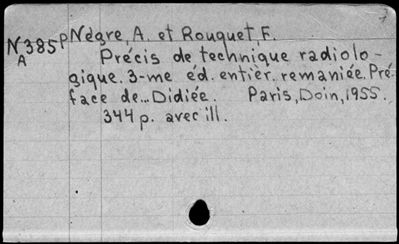 N385p Nègre, A. et Rouquet F.
A
Précis de technique radiolo-
gique. 3-me éd. entièr. remaniée. Pré-
face de... Didiée. Paris, Doin, 1955.
344 p. avec ill.